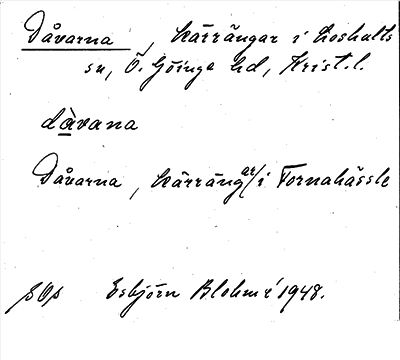 Dåvarna, Kärrängar i Loshults
sn, Ö. Göinge hd, Krist. l.
dàvana
Dåvarna, Kärrängar i Tornahässle
Esbjörn Blohmé 1948.